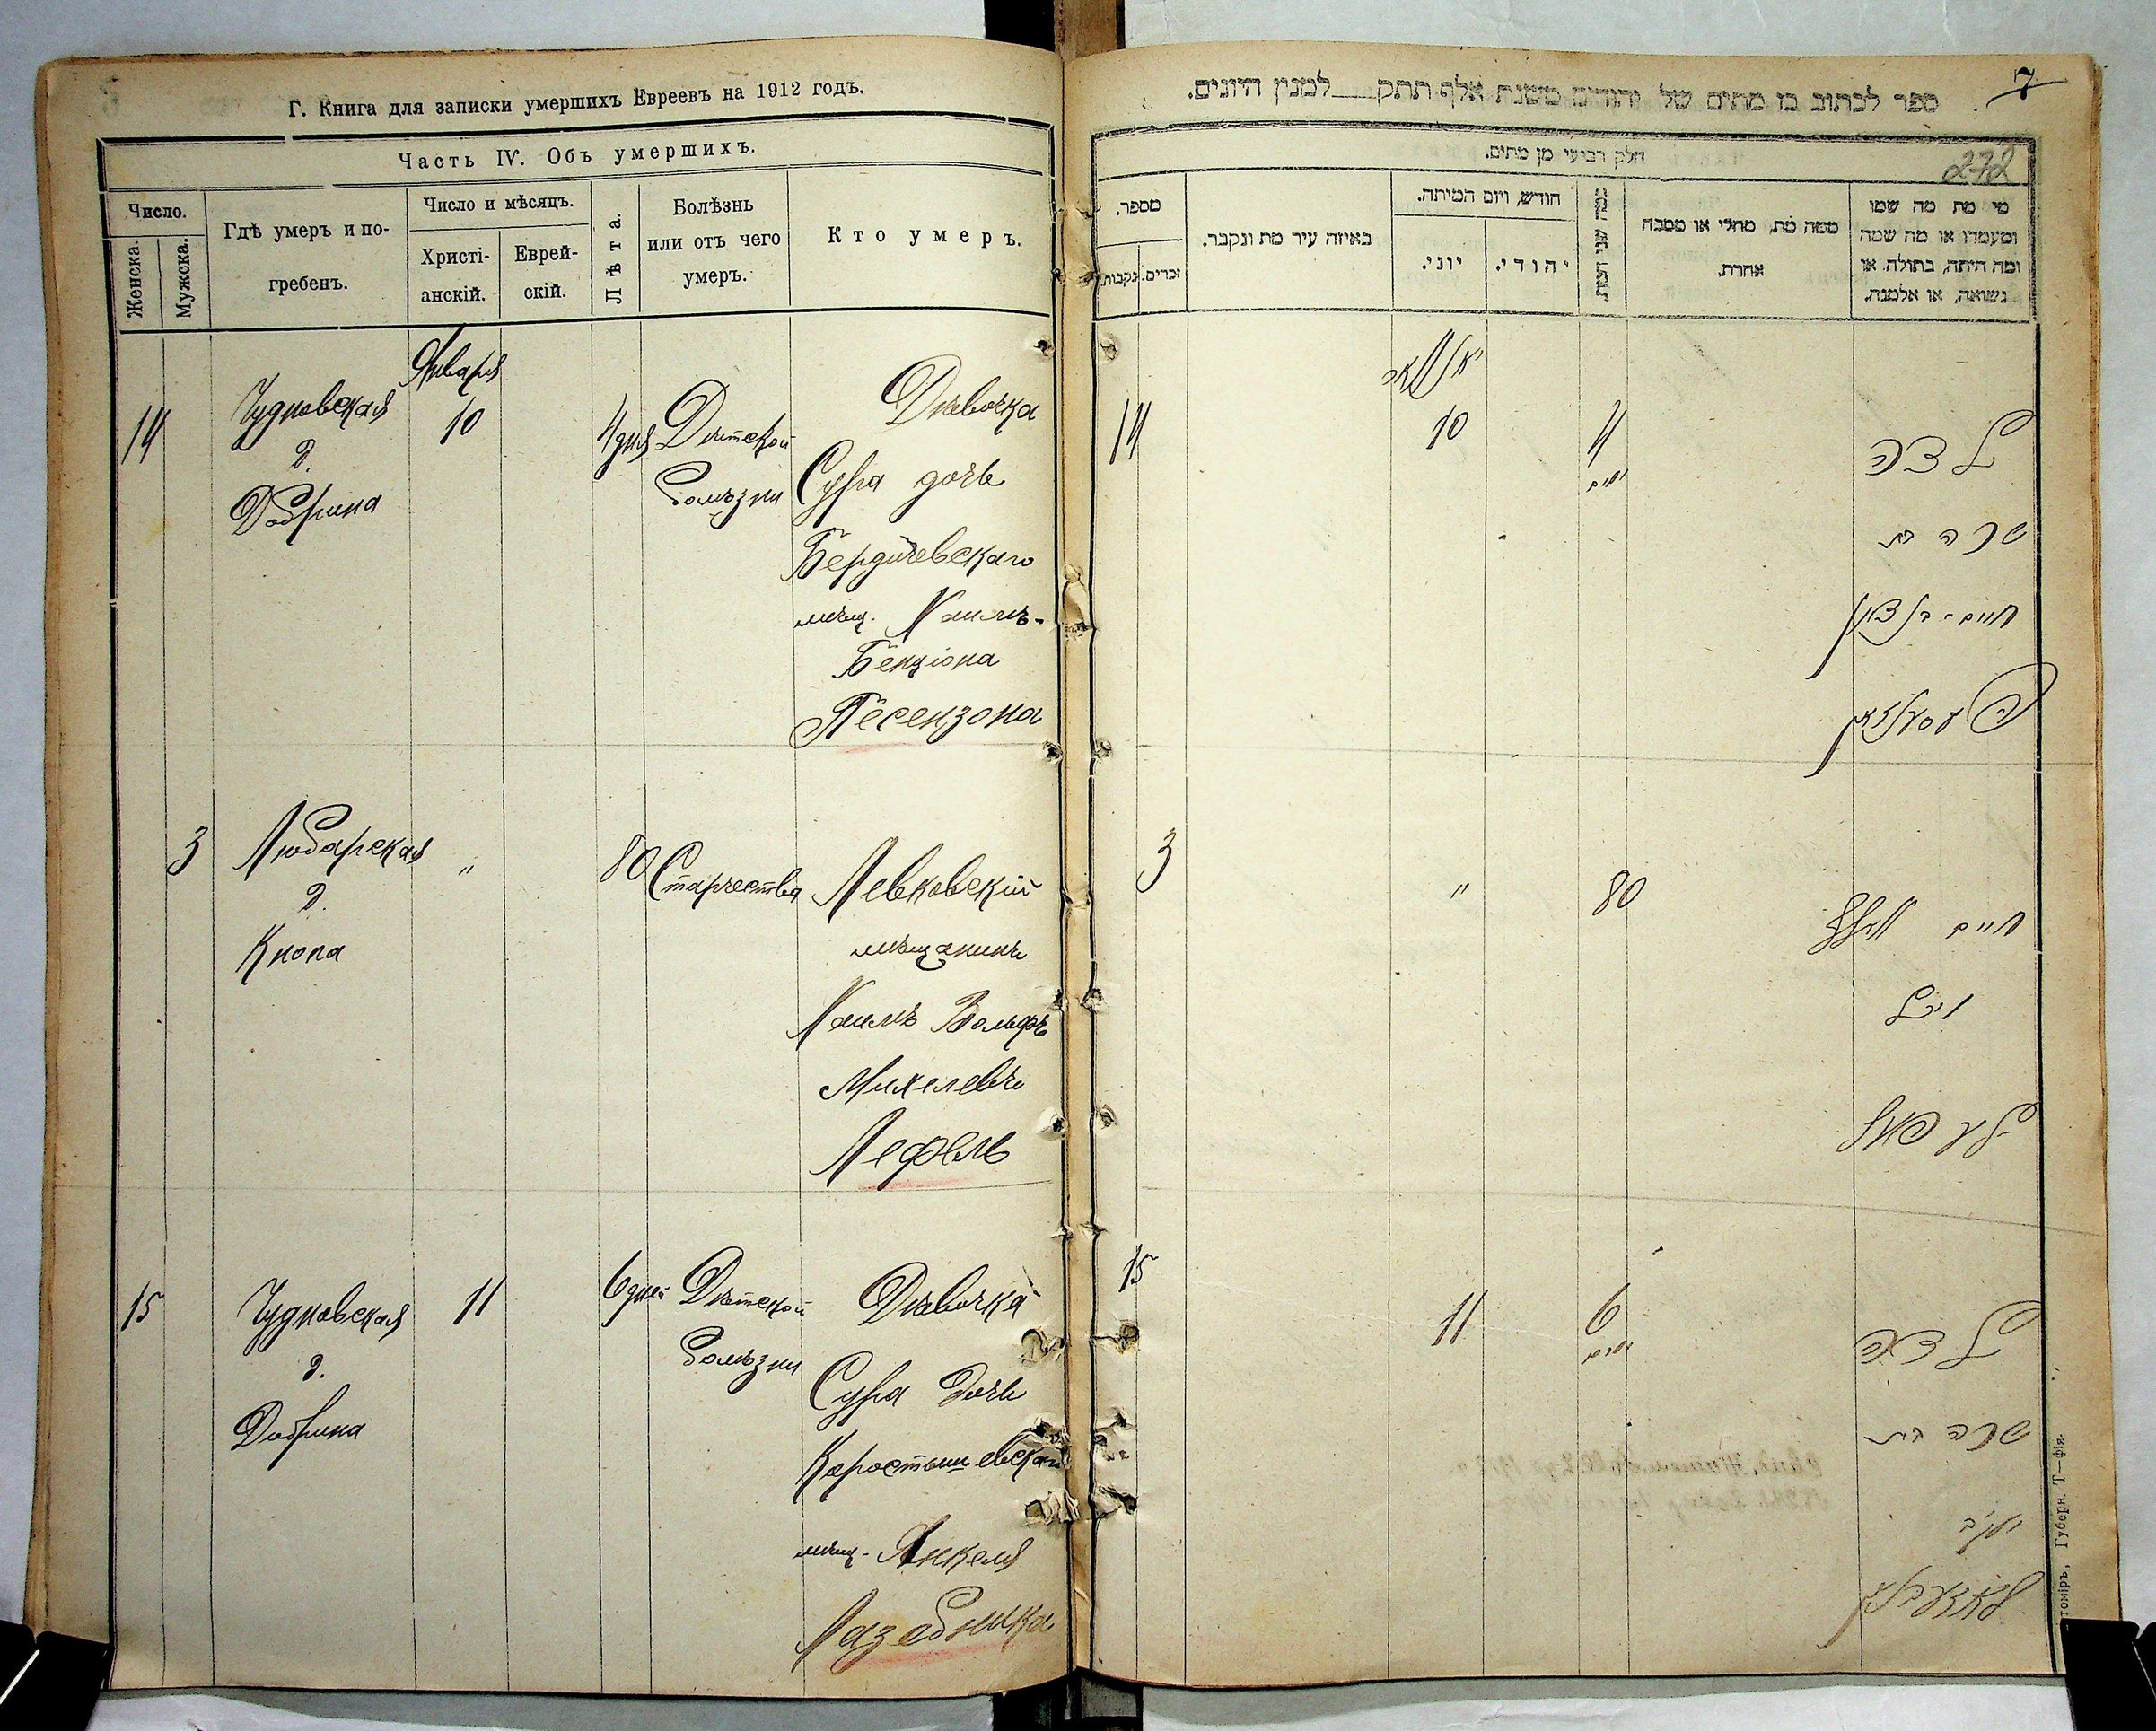 Г. Книга для записки умершихъ Евреевъ на 1912 годъ.
Часть IV. Объ умершихъ.
Число.
Женска.
Мужска.
Гдѣ умеръ и по-
гребенъ.
Число и мѣсяцъ.
Христі-
анскій.
Еврей-
скій.
Лѣта.
Болѣзнь
или отъ чего
умеръ.
Кто умеръ.
14
Чудновская
д.
Добрина
Января
10
4 дня
Дѣтской
болѣзни
Дѣвочка
Сура дочь
Бердичевскаго
мѣщ. Хаимъ-
Бенціона
Песензона
3
Любарская
д.
Кнопа
"
80
Старчества
Левковскій
мѣщанинъ
Хаимъ Вольфъ
Михелевъ
Лефель
15
Чудновская
д.
Добрина
11
6 дней
Дѣтской
болѣзни
Дѣвочка
Сура дочь
Коростышевскаго
мѣщ. Янкеля
Лазебника
7
ספר לכתוב בו מתים של יהודים משנת אלף תתק למנין היונים.
272
חלק רביעי מן מתים.
מספר.
נקבות.
זכרים.
באיזה עיר מת ונקבר.
חודש, ויום המיתה.
יוני.
יהודי.
כמה שני המת.
ממה מת, מחלי או מסבה
אחרת.
מי מת מה שמו
ומעמדו או מה שמה
ומה היתה, בתולה, או
נשואה, או אלמנה.
14
יאנואר
10
4
ימים
ילדה
שרה בת
חיים-בן ציון
פעסענזאן
3
"
80
חיים וואלף
לעפעל
15
11
6
ימים
ילדה
שרה בת
יעקב
לאזעבניק
томіръ, Губерн. Т—фія.